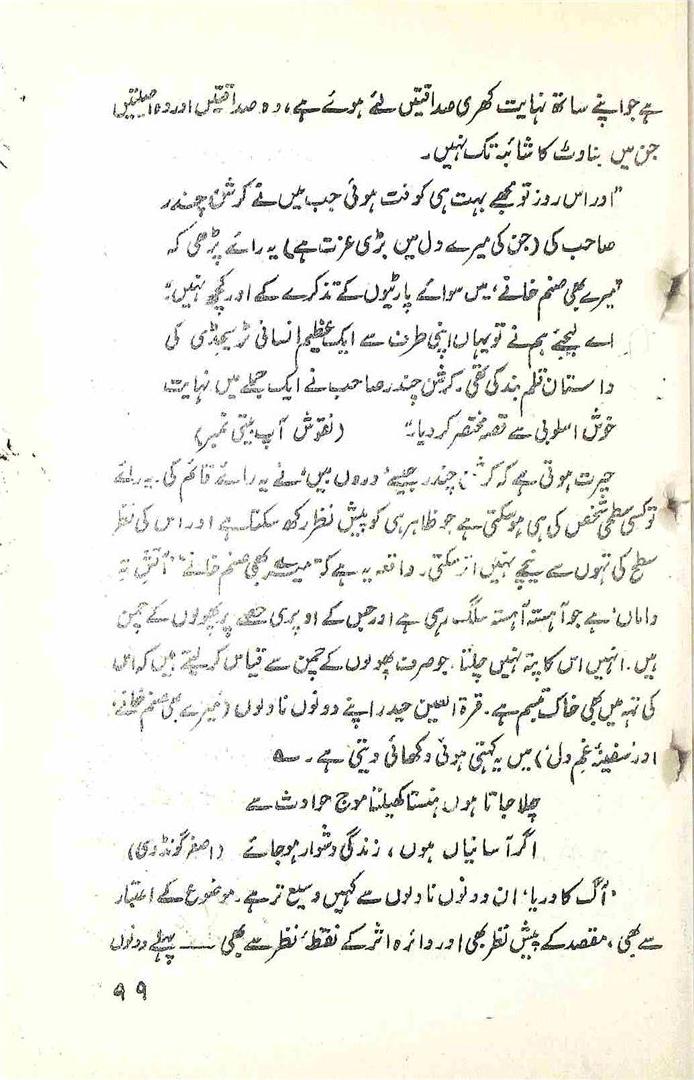 ہے جو اپنے ساتھ نہایت کھری صداقتیں لئے ہوئے ہے، وہ صداقتیں اور وہ اصلیتیں
جن میں بناوٹ کا شائبہ تک نہیں۔
"اور اس روز تو مجھے بہت ہی کوفت ہوئی جب میں نے کرشن چندر
صاحب کی (جن کی میرے دل میں بڑی عزت ہے) یہ رائے پڑھی کہ
'میرے بھی صنم خانے' میں سوائے پارٹیوں کے تذکرے کے اور کچھ نہیں:
اے لیجئے ہم نے تو یہاں اپنی طرف سے ایک عظیم انسانی ٹریجڈی کی
داستان قلم بند کی تھی۔ کرشن چندر صاحب نے ایک جملے میں نہایت
خوش اسلوبی سے قصہ مختصر کر دیا۔" (نقوش آپ بیتی نمبر)
حیرت ہوتی ہے کہ کرشن چندر جیسے 'دروں بیں' نے یہ رائے قائم کی۔ یہ رائے
تو کسی سطحی شخص کی ہی ہو سکتی ہے جو ظاہر ہی کو پیش نظر رکھ سکتا ہے اور اس کی نظر
سطح کی تہوں سے نیچے نہیں اتر سکتی۔ واقعہ یہ ہے کہ "میرے بھی صنم خانے" 'آتش تہ
داماں' ہے جو آہستہ آہستہ سلگ رہی ہے اور جس کے اوپری حصے پر پھولوں کے چمن
ہیں۔ انہیں اس کا پتہ نہیں چلتا، جو صرف پھولوں کے چمن سے قیاس کر لیتے ہیں کہ اس
کی تہہ میں بھی خاک تبسم ہے۔ قرۃ العین حیدر اپنے دونوں ناولوں (میرے بھی صنم خانے'
اور 'سفینۂ غم دل') میں یہ کہتی ہوئی دکھائی دیتی ہے۔ ؎
چلا جاتا ہوں ہنستا کھیلتا موج حوادث سے
اگر آسانیاں ہوں، زندگی دشوار ہو جائے (اصغر گونڈوی)
'آگ کا دریا' ان دونوں ناولوں سے کہیں وسیع تر ہے۔ موضوع کے اعتبار
سے بھی، مقصد کے پیش نظر بھی اور دائرہ اثر کے نقطۂ نظر سے بھی ــــ پہلے دونوں
۹۹